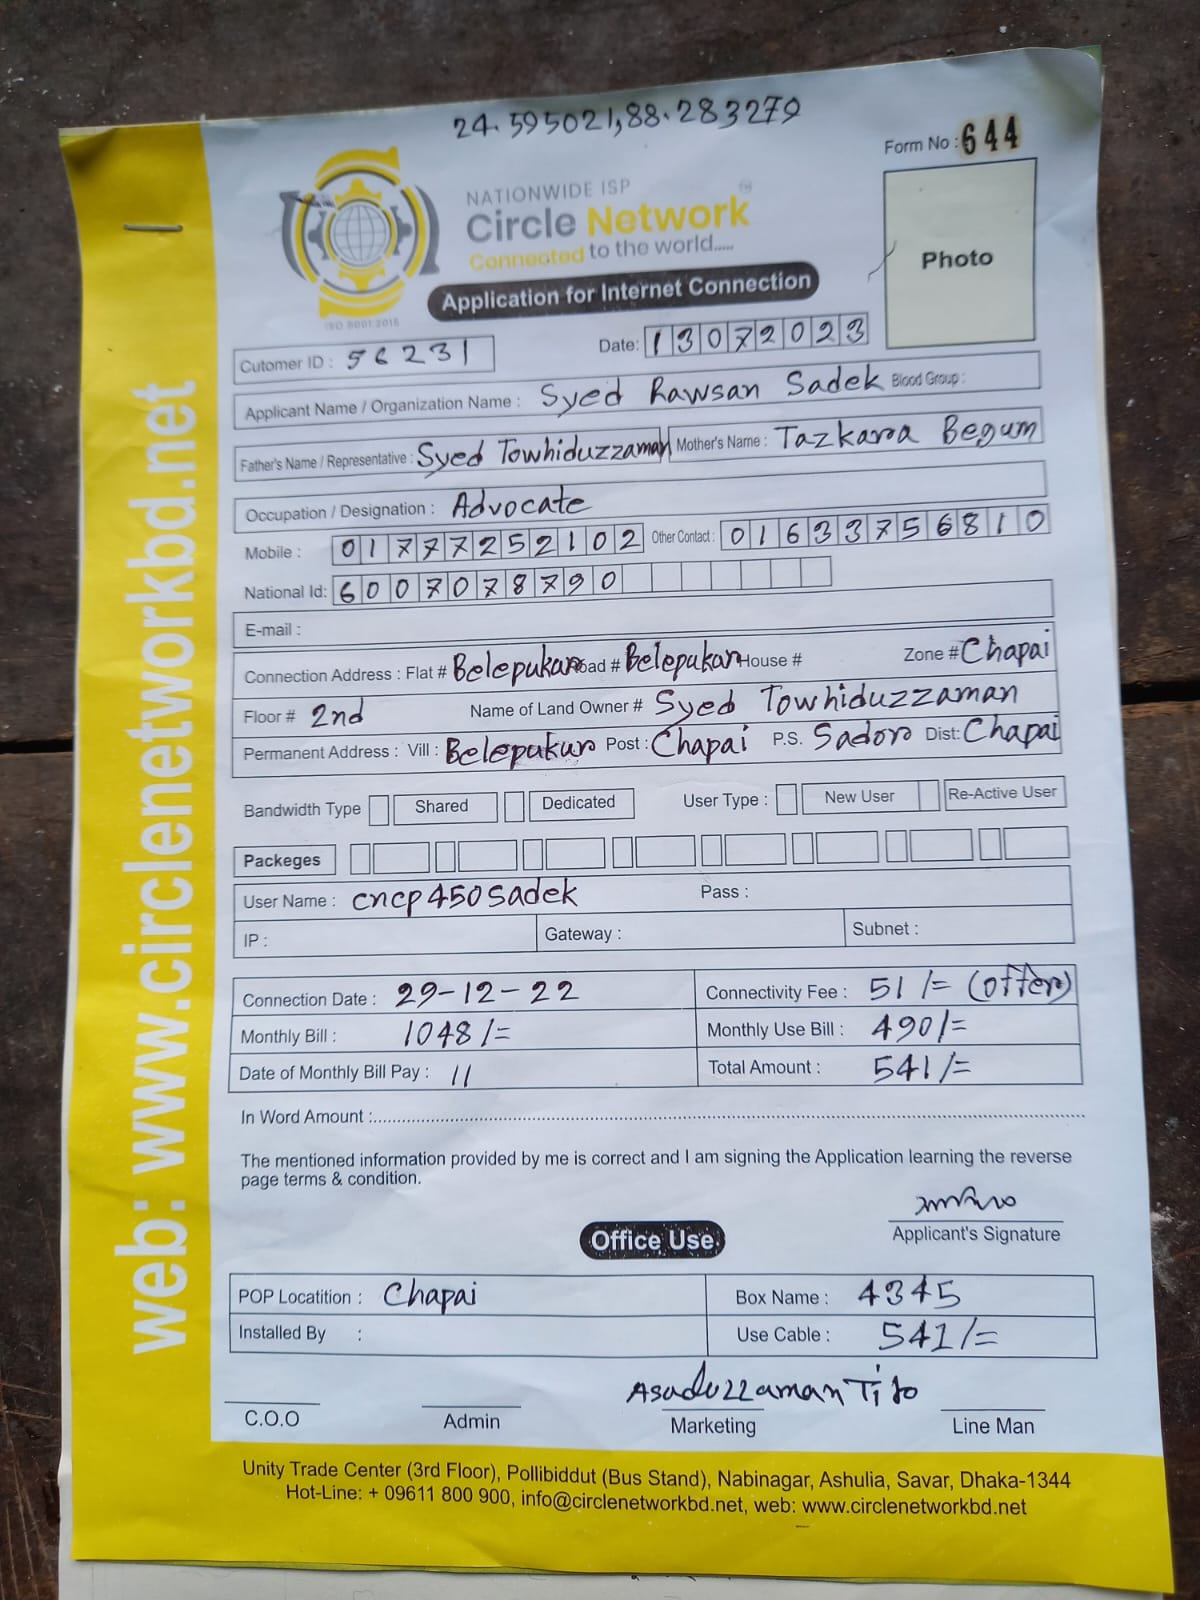 24.595021,88.283279
Form No : 644
NATIONWIDE ISP
Circle Network
Connected to the world.....
ISO 9001:2015
Photo
Application for Internet Connection
Cutomer ID : 56231
Date: 13072023
Applicant Name / Organization Name : Syed Rawsan Sadek Blood Group :
Father's Name / Representative : Syed Towhiduzzaman Mother's Name : Tazkara Begum
Occupation / Designation : Advocate
Mobile : 01777252102 Other Contact : 01633756810
National Id: 6007078790
E-mail :
Connection Address : Flat # Belepukur Road # Belepukur House # Zone # Chapai
Floor # 2nd Name of Land Owner # Syed Towhiduzzaman
Permanent Address : Vill : Belepukur Post : Chapai P.S. Sador Dist: Chapai
Bandwidth Type Shared Dedicated User Type : New User Re-Active User
Packeges
User Name : cncp450sadek Pass :
IP : Gateway : Subnet :
Connection Date : 29-12-22 Connectivity Fee : 51/= (offer)
Monthly Bill : 1048/= Monthly Use Bill : 490/=
Date of Monthly Bill Pay : 11 Total Amount : 541/=
In Word Amount :
The mentioned information provided by me is correct and I am signing the Application learning the reverse
page terms & condition.
Applicant's Signature
Office Use
POP Locatition : Chapai Box Name : 4345
Installed By : Use Cable : 541/=
Asaduzzaman Tito
C.O.O Admin Marketing Line Man
Unity Trade Center (3rd Floor), Pollibiddut (Bus Stand), Nabinagar, Ashulia, Savar, Dhaka-1344
Hot-Line: + 09611 800 900, info@circlenetworkbd.net, web: www.circlenetworkbd.net
web: www.circlenetworkbd.net